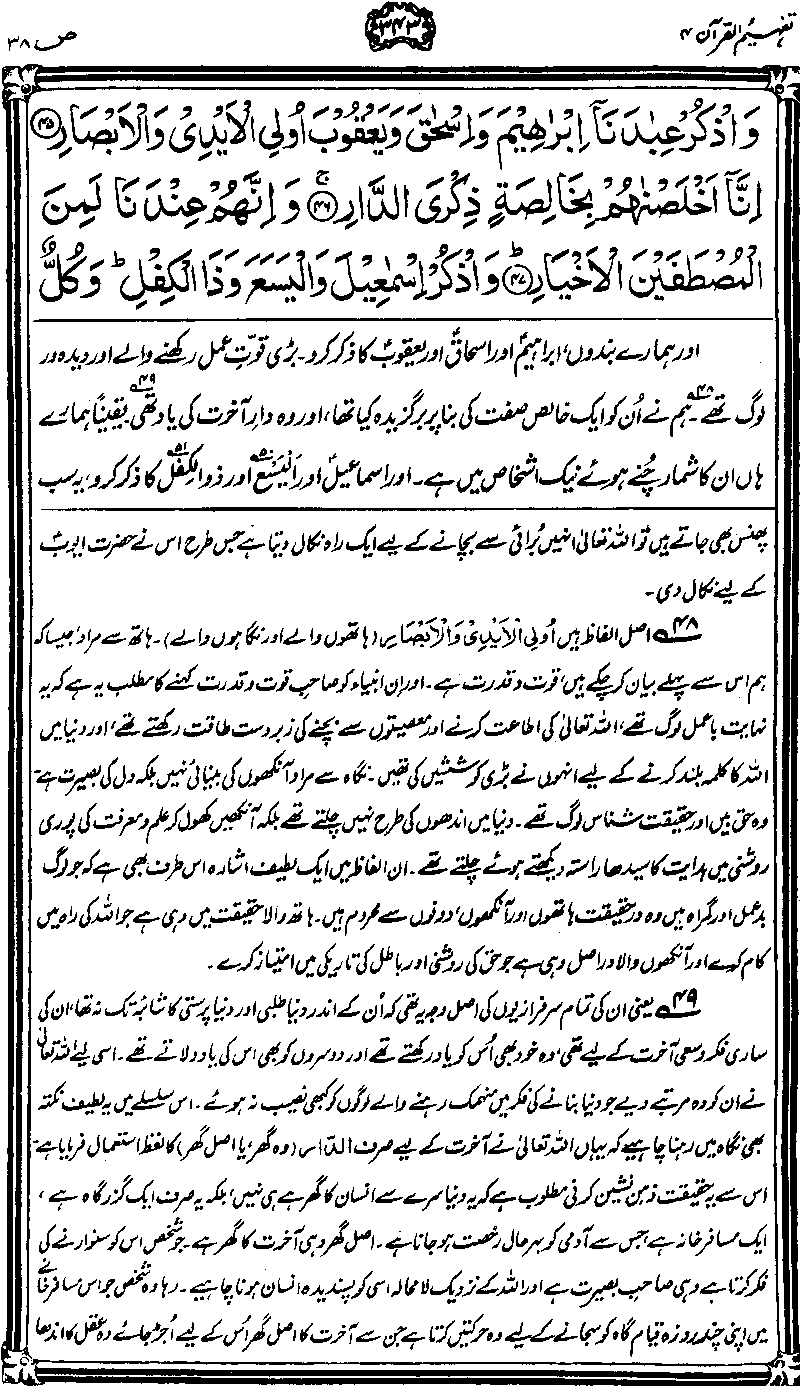 تفہیم القرآن ۴
۳۴۳
ص ۳۸
وَاذْكُرْ عِبٰدَنَآ اِبْرٰهِيْمَ وَاِسْحٰقَ وَيَعْقُوْبَ اُولِي الْاَيْدِيْ وَالْاَبْصَارِ ۴۵
اِنَّآ اَخْلَصْنٰهُمْ بِخَالِصَةٍ ذِكْرَى الدَّارِ ۴۶ ۚ وَاِنَّهُمْ عِنْدَنَا لَمِنَ
الْمُصْطَفَيْنَ الْاَخْيَارِ ۴۷ ؕ وَاذْكُرْ اِسْمٰعِيْلَ وَالْيَسَعَ وَذَا الْكِفْلِ ؕ وَكُلٌّ
اور ہمارے بندوں، ابراہیمؑ اور اسحاقؑ اور یعقوبؑ کا ذکر کرو۔ بڑی قوتِ عمل رکھنے والے اور دیدہ ور
لوگ تھے۔۴۸ ہم نے اُن کو ایک خالص صفت کی بنا پر برگزیدہ کیا تھا، اور وہ دارِ آخرت کی یاد تھی۔۴۹ یقیناً ہمارے
ہاں ان کا شمار چُنے ہوئے نیک اشخاص میں ہے۔ اور اسماعیلؑ اور الیَسَع۵۰ اور ذوالکِفل۵۱ کا ذکر کرو، یہ سب
پھنس بھی جاتے ہیں تو اللہ تعالیٰ انہیں بُرائی سے بچانے کے لیے ایک راہ نکال دیتا ہے جس طرح اس نے حضرت ایوبؑ
کے لیے نکال دی۔
۴۸ اصل الفاظ ہیں اُولِی الْاَیْدِیْ وَالْاَبْصَارِ (ہاتھوں والے اور نگاہوں والے)۔ ہاتھ سے مراد، جیسا کہ
ہم اس سے پہلے بیان کر چکے ہیں، قوت و قدرت ہے۔ اور ان انبیاء کو صاحبِ قوت و قدرت کہنے کا مطلب یہ ہے کہ یہ
نہایت باعمل لوگ تھے، اللہ تعالیٰ کی اطاعت کرنے اور معصیتوں سے بچنے کی زبردست طاقت رکھتے تھے، اور دنیا میں
اللہ کا کلمہ بلند کرنے کے لیے انہوں نے بڑی کوششیں کی تھیں۔ نگاہ سے مراد آنکھوں کی بینائی نہیں بلکہ دل کی بصیرت ہے۔
وہ حق بیں اور حقیقت شناس لوگ تھے۔ دنیا میں اندھوں کی طرح نہیں چلتے تھے بلکہ آنکھیں کھول کر علم و معرفت کی پوری
روشنی میں ہدایت کا سیدھا راستہ دیکھتے ہوئے چلتے تھے۔ ان الفاظ میں ایک لطیف اشارہ اس طرف بھی ہے کہ جو لوگ
بدعمل اور گمراہ ہیں وہ درحقیقت ہاتھوں اور آنکھوں، دونوں سے محروم ہیں۔ ہاتھ والا حقیقت میں وہی ہے جو اللہ کی راہ میں
کام کرے اور آنکھوں والا دراصل وہی ہے جو حق کی روشنی اور باطل کی تاریکی میں امتیاز کرے۔
۴۹ یعنی ان کی تمام سرفرازیوں کی اصل وجہ یہ تھی کہ اُن کے اندر دنیا طلبی اور دنیا پرستی کا شائبہ تک نہ تھا، ان کی
ساری فکر و سعی آخرت کے لیے تھی، وہ خود بھی اُس کو یاد رکھتے تھے اور دوسروں کو بھی اس کی یاد دلاتے تھے۔ اسی لیے اللہ تعالیٰ
نے ان کو وہ مرتبے دیے جو دنیا بنانے کی فکر میں منہمک رہنے والے لوگوں کو کبھی نصیب نہ ہوئے۔ اس سلسلے میں یہ لطیف نکتہ
بھی نگاہ میں رہنا چاہیے کہ یہاں اللہ تعالیٰ نے آخرت کے لیے صرف الدّار (وہ گھر، یا اصل گھر) کا لفظ استعمال فرمایا ہے۔
اس سے یہ حقیقت ذہن نشین کرنی مطلوب ہے کہ یہ دنیا سرے سے انسان کا گھر ہے ہی نہیں، بلکہ یہ صرف ایک گزرگاہ ہے،
ایک مسافر خانہ ہے جس سے آدمی کو بہرحال رخصت ہو جانا ہے۔ اصل گھر وہی آخرت کا گھر ہے۔ جو شخص اس کو سنوارنے کی
فکر کرتا ہے وہی صاحبِ بصیرت ہے اور اللہ کے نزدیک لامحالہ اسی کو پسندیدہ انسان ہونا چاہیے۔ رہا وہ شخص جو اس مسافر خانے
میں اپنی چند روزہ قیام گاہ کو سجانے کے لیے وہ حرکتیں کرتا ہے جن سے آخرت کا اصل گھر اُس کے لیے اُجڑ جائے وہ عقل کا اندھا